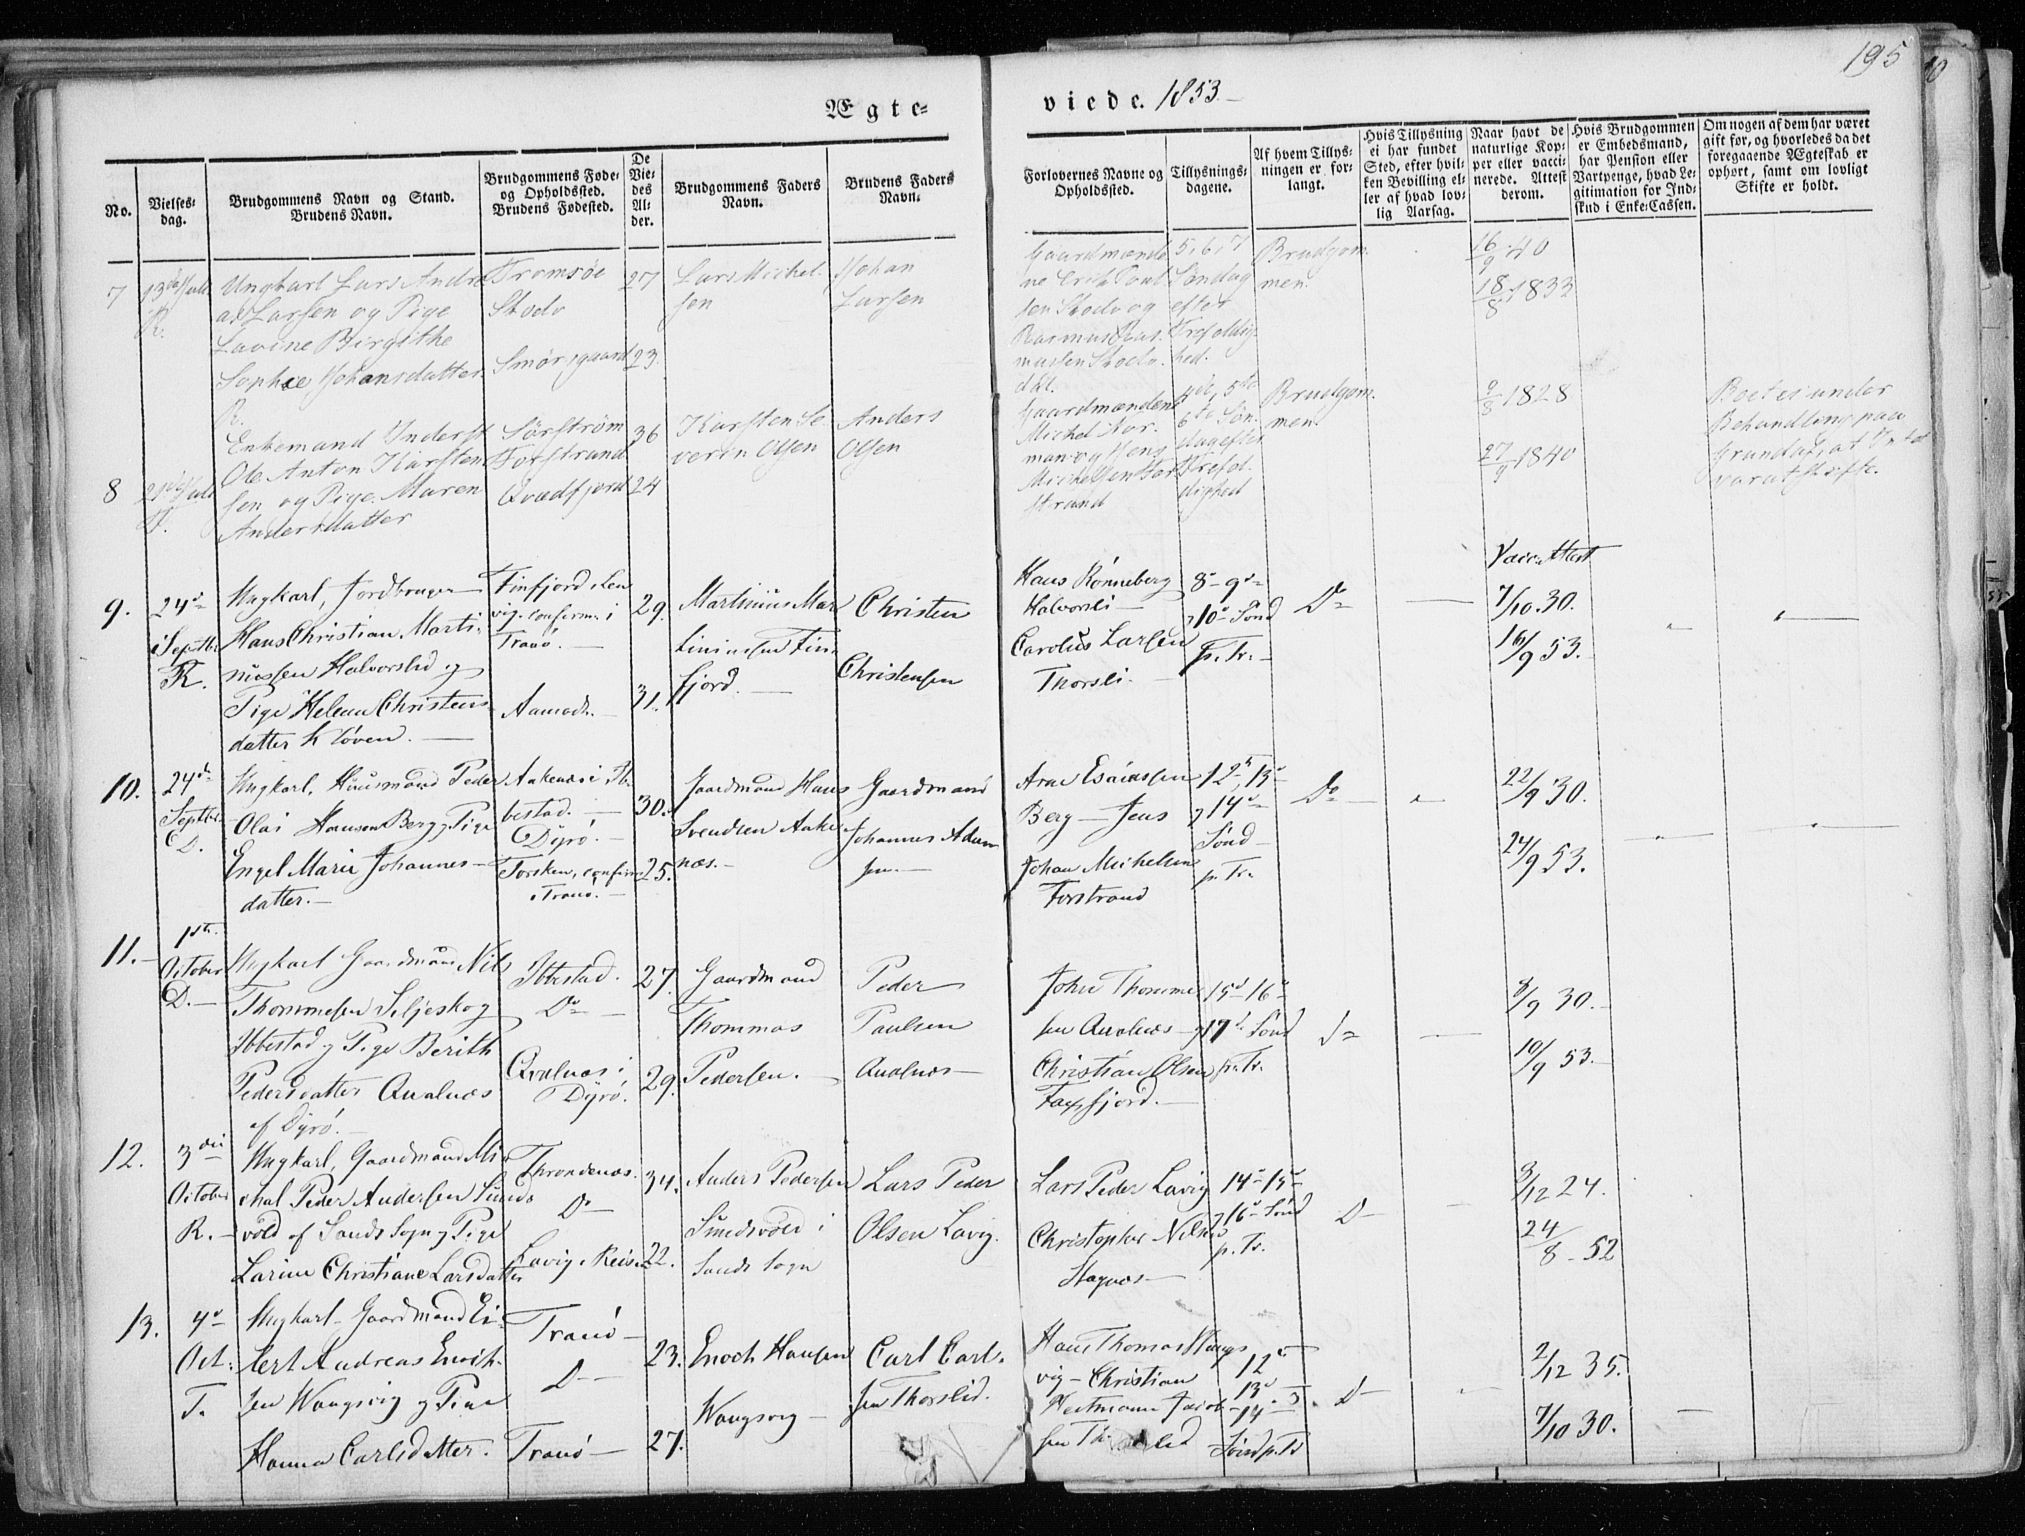 195
Ægte-
viede. 1853.
No.
Vielses-
dag.
Brudgommens Navn og Stand.
Brudens Navn.
Brudgommens Føde-
og Opholdssted.
Brudens Fødested.
De
Vie-
des
Al-
der.
Brudgommens Faders
Navn.
Brudens Faders
Navn.
Forlovernes Navne og
Opholdssted.
Tillysnings-
dagene.
Af hvem Tillys-
ningen er for-
langt.
Hvis Tillysning
ei har fundet
Sted, efter hvil-
ken Bevilling el-
ler af hvad lov-
lig Aarsag.
Naar havt de
naturlige Kop-
per eller vacci-
nerede. Attest
derom.
Hvis Brudgommen
er Embedsmand,
har Pension eller
Vartpenge, hvad Le-
gitimation for Ind-
skud i Enke-Cassen.
Om nogen af dem har været
gift før, og hvorledes da det
foregaaende Ægteskab er
ophørt, samt om lovligt
Skifte er holdt.
7
13de Juli
R.
Ungkarl Lars Andre
as Larsen og Pige
Lavine Birgithe
Sophie Johansdatter
Tromsøe
Stodv
Smørsgaard
27
23
Lars Michel-
sen
Johan
Larsen
Gaardmænde
ne Erik Poul
sen Stodv og
Rasmus Ras-
mussen Stodv.
5, 6, 7
Søndag
efter
Trefoldig-
hed.
Brudgom-
men
16/9 40
18/8 1833
8
21de Juli
T.
Enkemand Inderst
Ole Anton Karsten
sen og Pige Maren
Andersdatter
Sørstrøm
Forstrand
Qvædfjord
36
24
Karsten Se
verin Olsen
Anders
Olsen
Gaardmændene
Michel Nor-
man og Jens
Michelsen For
strand
4de, 5te
6te Søn-
dag efter
Trefol-
dighed
Brudgom-
men
9/8 1828
27/9 1840
Boet er under
Behandling paa
Grund af, at Intet
var at skifte.
9.
24de
Septbr.
R.
Ungkarl, Jordbruger
Hans Christian Marti-
niussen Halvorslid og
Pige Helena Christens
datter Kløven.
Finfjord i Len
vig. confirm. i
Tranø.
29.
31.
Martinius Mar
tiniussen Fin-
fjord.
Christen
Christensen
Hans Rønneberg
Halvorsli
Carolius Larsen
Thorsli.
8de 9de
10de Sønd
p. Tr.
Do
Vacc. Attest
7/10 30.
16/9 53.
10.
24de
Septbr.
D.
Ungkarl, Huusmand Peder
Olai Hansen Berg og Pige
Engel Marie Johannes-
datter.
Aakenæs i Ib-
bestad.
Dyrø.
Torsken, confirm
i Tranø.
30.
25.
Gaardmand Hans
Svendsen Aake
næs.
Gaardmand
Johannes Adam
sen.
Arne Esaiassen
Berg Jens
Johan Michelsen
Forstrand
12te, 13de
og 14de
Sønd
p. Tr.
Do
22/9 30.
24/9 53.
11.
1ste
October
D.
Ungkarl Gaardmand Nils
Thommesen Seljeskog
Ibbestad og Pige Berith
Pedersdatter Qvalnæs
af Dyrø.
Ibbestad.
Do
Qvalnæs i
Dyrø.
27.
29.
Gaardmand
Thommas
Pedersen.
Peder
Paulsen
Qvalnæs
John Thomme
sen Qvalnæs
Christian Olsen
Faxfjord.
15de 16de
og 17de Sønd
p. Tr.
Do
8/9 30.
10/9 53.
12.
3die
October
R.
Ungkarl, Gaardmand Mi
chal Peder Andersen Sunds
vold af Sands Sogn og Pige
Larine Christiane Larsdatter
Throndenæs.
Do
Lavig i Reisen
34.
22.
Anders Pedersen
Sundsvold i
Sands Sogn
Lars Peder
Olsen Lavig.
Lars Peder Lavig
Christopher Nilsen
Stagnæs
14de 15de
og 16de Sønd
p. Tr.
Do
3/12 24.
24/8 52
13.
4de
Oct.
T.
Ungkarl Gaardmand Ei-
lert Andreas Enoch-
sen Wangsvig og Pige
Hanna Carlsdatter.
Tranø
Do
Tranø
23.
27.
Enoch Hansen
Wangsvig
Carl Carl-
sen Thorslid.
Hans Thomas Wangs
vig Christian
Hertmann Jacob-
12te
13de
14de
Sønd p. Tr
Do
2/12 35.
7/10 30.